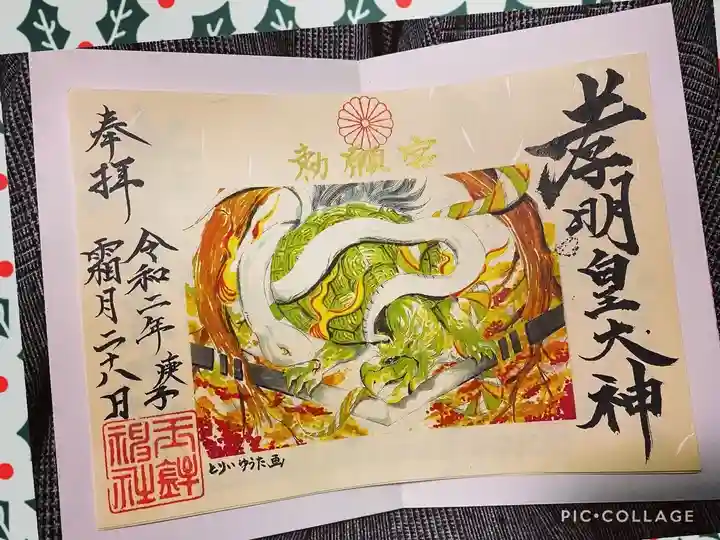 孝明皇大神
勅願宮
奉拝
令和二年庚子
霜月二十八日
玉鉾
神社
とりいゆうた画
PIC•COLLAGE